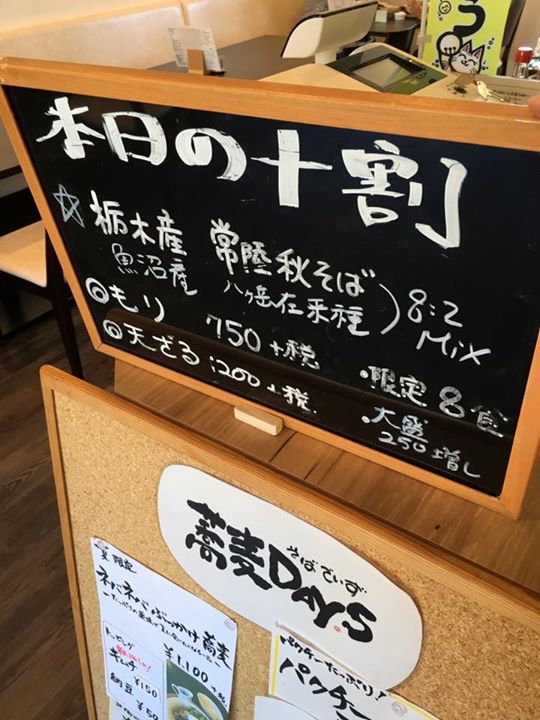 本日の十割
☆栃木産 常陸秋そば
魚沼産 八ヶ岳在来種
8:2 Mix
◎もり 750+税
◎天ざる:200+税
・限定8食
・大盛 250増し
そばでいず
蕎麦DAYS
夏限定
ネバネバぶっかけ蕎麦
¥1,100
トッピング
キムチ ¥150
納豆 ¥50
パクチーたっぷり!
パクチー